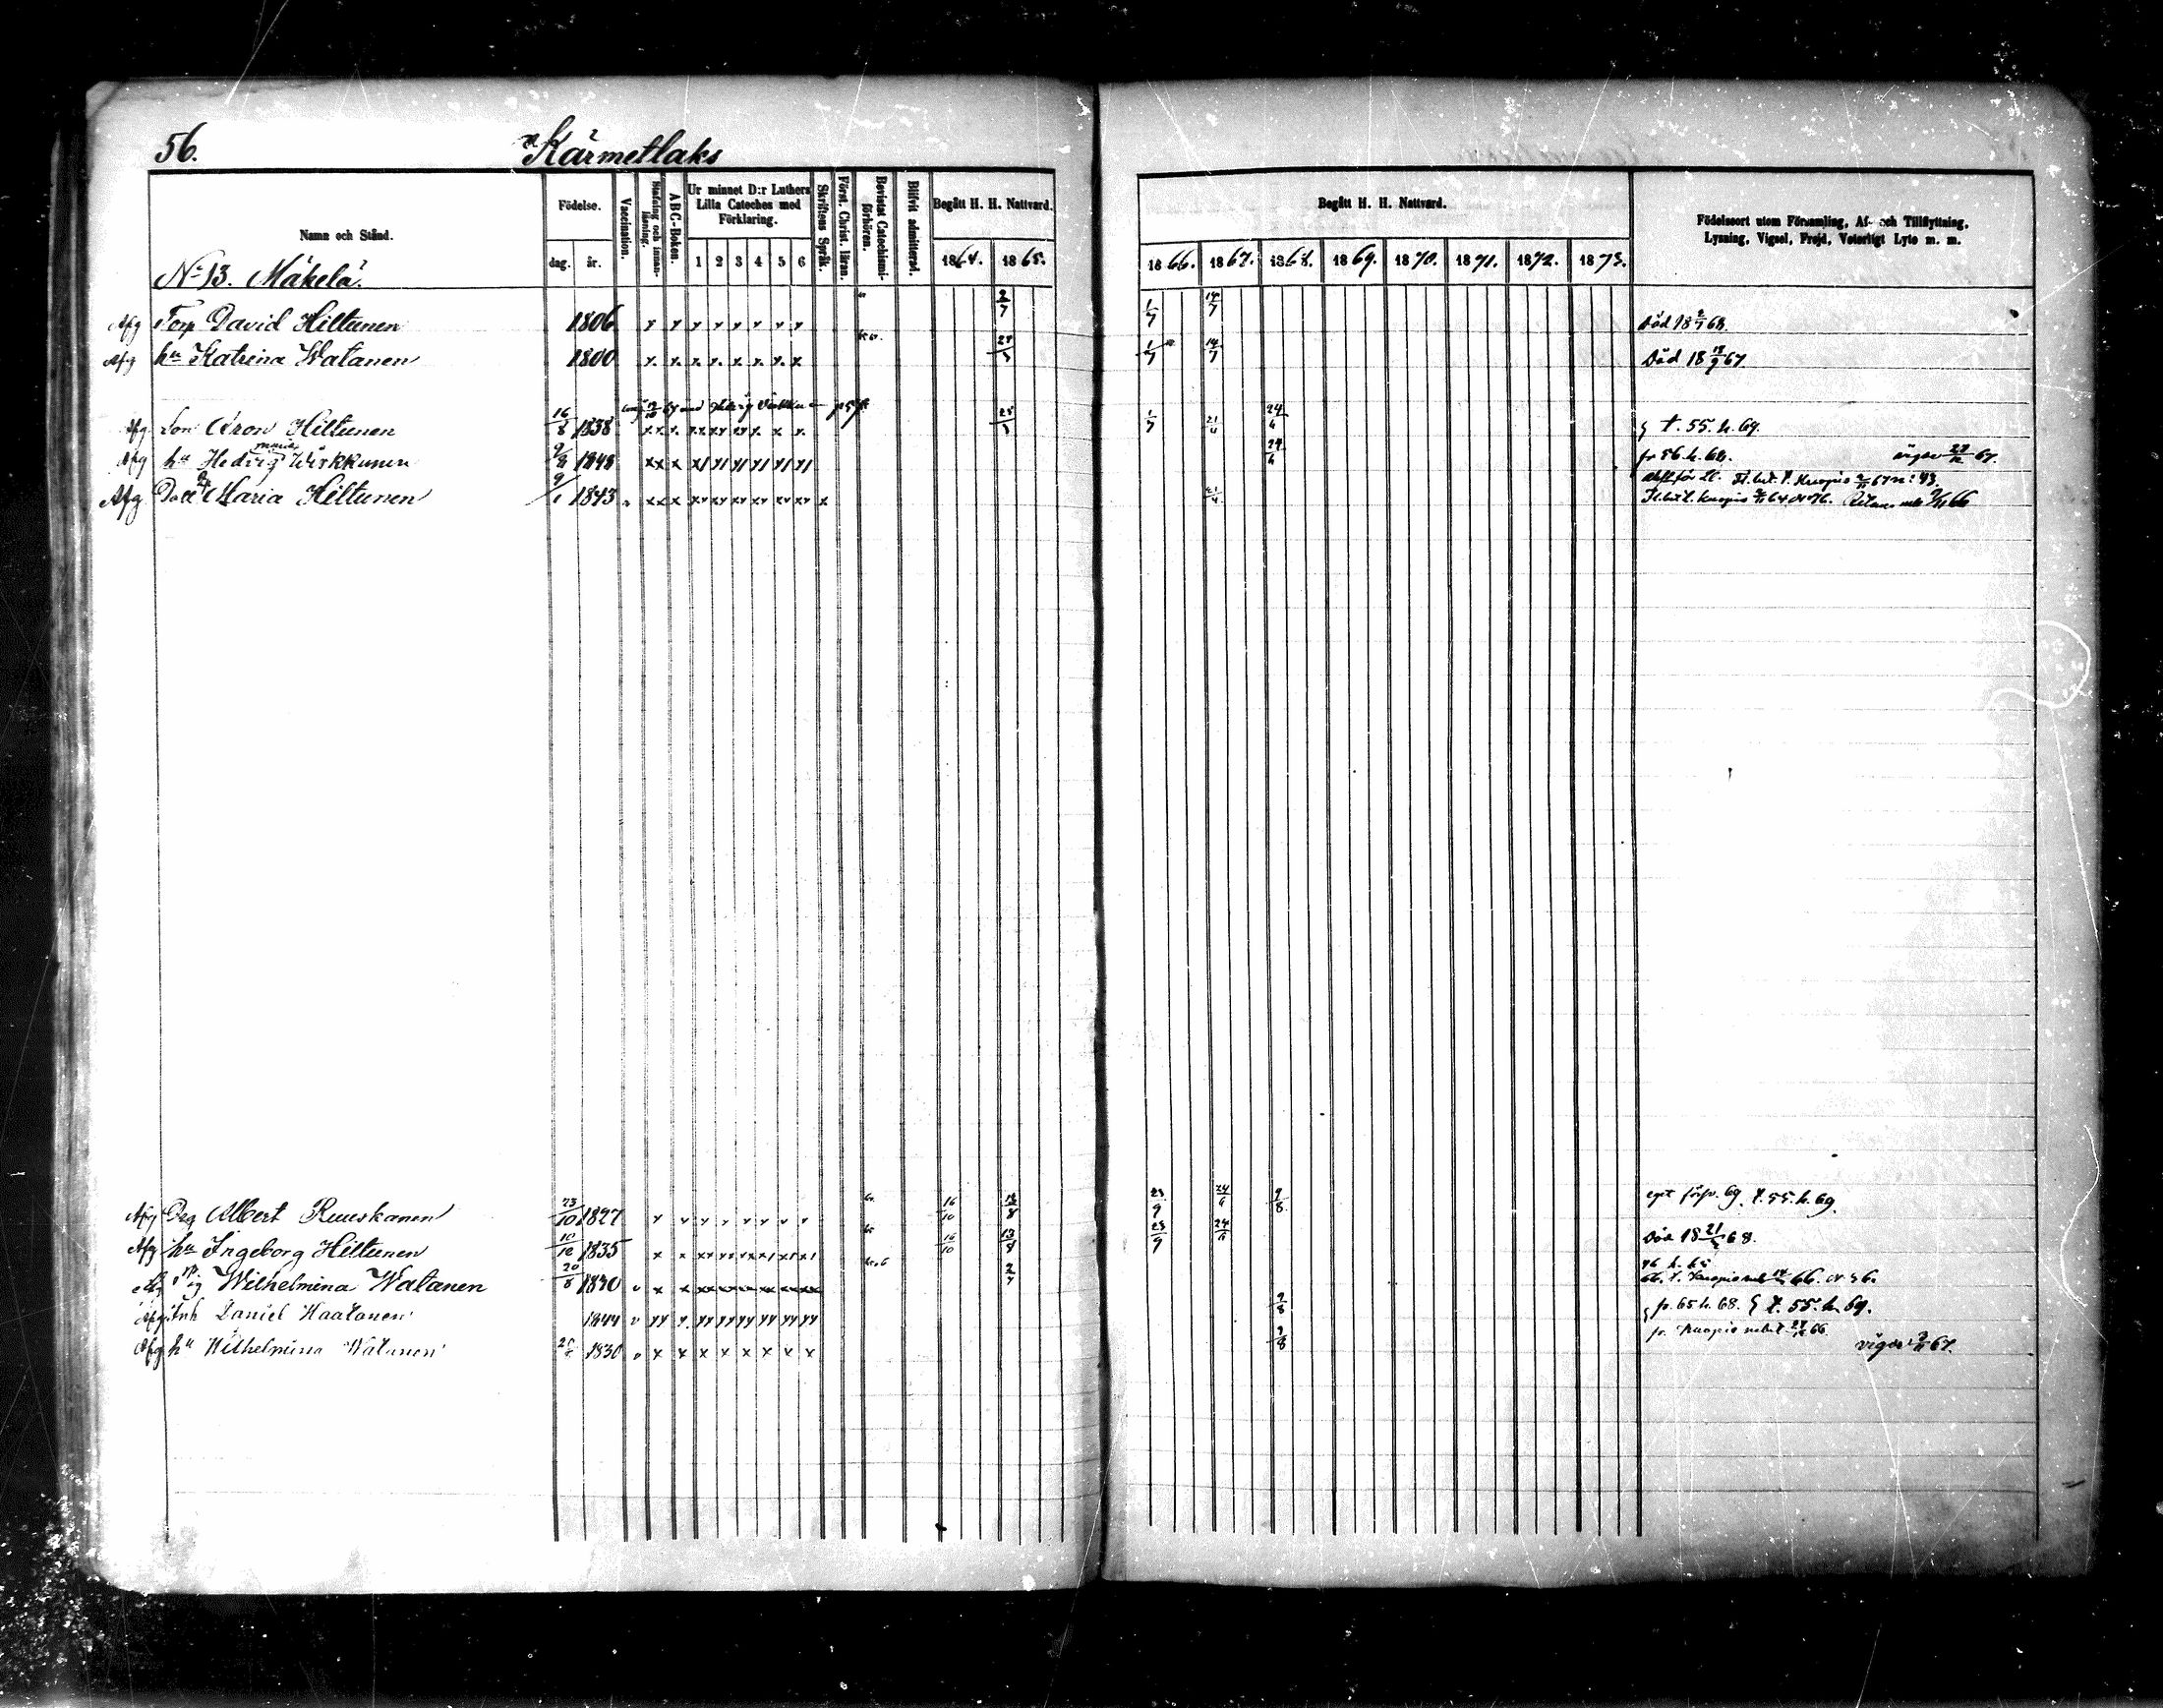 56. Kärmetlaks
Namn och Stånd. Födelse. dag. år. Vaccination. Stafning och innanläsning. A B C-Boken. Ur minnet D:r Luthers Lilla Cateches med Förklaring. 1 2 3 4 5 6 Skriftens Språk. Först. Christ. läran. Bevistat Catechismiförhören. Blifvit admitterad. Begått H. H. Nattvard. 1864. 1865.
Begått H. H. Nattvard. 1866. 1867. 1868. 1869. 1870. 1871. 1872. 1873.
Födelseort utom Församling, Af- och Tillflyttning,
Lysning, Vigsel, Frejd, Veterligt Lyte m. m.
No 13. Mäkelä.
Afg Torp David Hiltunen 1806 2/7 1/7 14/7 Död 18 68.
Afg hu Katrina Watanen 1800 1/7 14/7 Död 18 67.
Afg Son Aron Hiltunen 16/8 1838 1/7 24/6 t. 55. h. 69.
Afg hu Hedvig Maria Wirkkunen 1848 24/6 fr 56. h. 68. vigde 67.
Afg Dott Maria Hiltunen 9/1 1843 Kuopio 64 66
Afg Deg Albert Ruuskanen 23/10 1827 16/10 13/8 23/9 24/6 9/8 69. t. 55. h. 69.
Afg hu Ingeborg Hiltunen 10/10 1835 16/10 13/8 23/9 24/6 Död 18 21 68.
Wilhelmina Watanen 20/8 1830 2/7 66. t. Kuopio 66.
Afg Inh Daniel Haatanen 1844 9/8 fr. 65 h. 68. t. 55. h. 69.
Afg hu Wilhelmina Watanen 1830 9/8 fr. Kuopio 66. vigde 67.